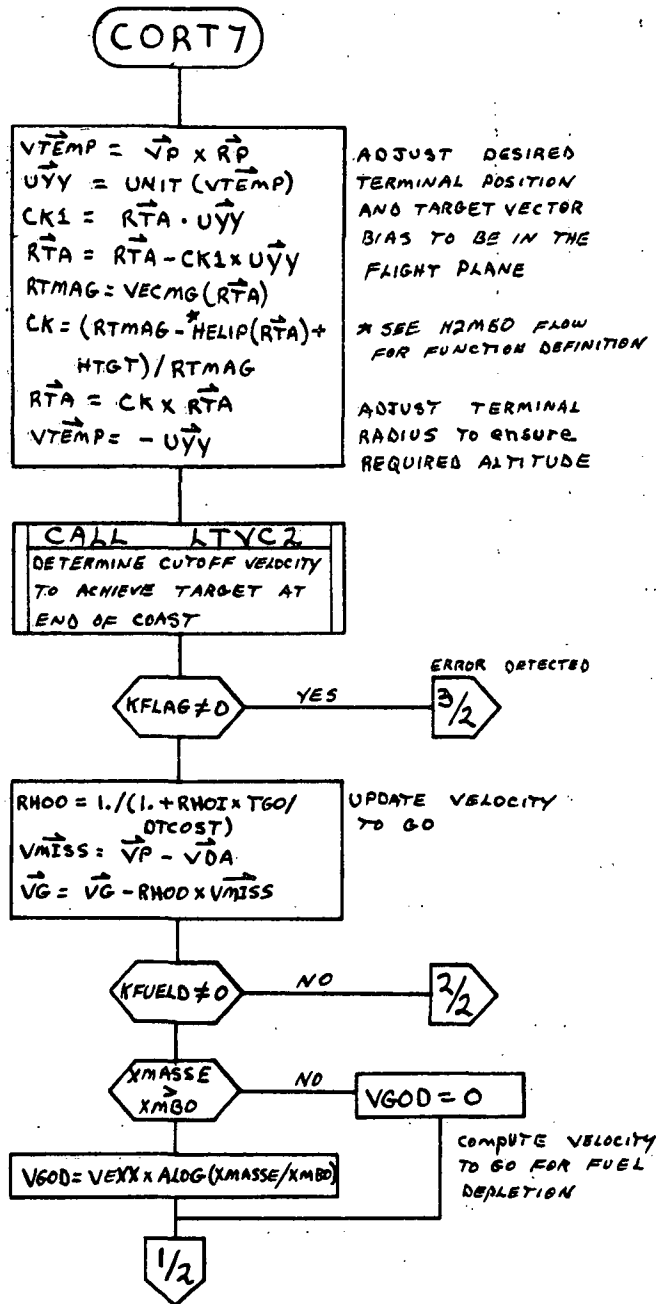 CORT7
VTEMP = VP x RP
UYY = UNIT (VTEMP)
CK1 = RTA · UYY
RTA = RTA - CK1 x UYY
RTMAG = VECMG(RTA)
CK = (RTMAG - *HELIP(RTA) +
HTGT) / RTMAG
RTA = CK x RTA
VTEMP = - UYY
ADJUST DESIRED
TERMINAL POSITION
AND TARGET VECTOR
BIAS TO BE IN THE
FLIGHT PLANE
* SEE H2MBO FLOW
FOR FUNCTION DEFINITION
ADJUST TERMINAL
RADIUS TO ensure
REQUIRED ALTITUDE
CALL LTVC2
DETERMINE CUTOFF VELOCITY
TO ACHIEVE TARGET AT
END OF COAST
KFLAG ≠ 0
YES
ERROR DETECTED
3/2
RHOO = 1./(1. + RHOI x TGO/
DTCOST)
VMISS = VP - VDA
VG = VG - RHOO x VMISS
UPDATE VELOCITY
TO GO
KFUELD ≠ 0
NO
2/2
XMASSE
>
XMBO
NO
VGOD = 0
COMPUTE VELOCITY
TO GO FOR FUEL
DEPLETION
VGOD = VEXX x ALOG(XMASSE/XMBO)
1/2